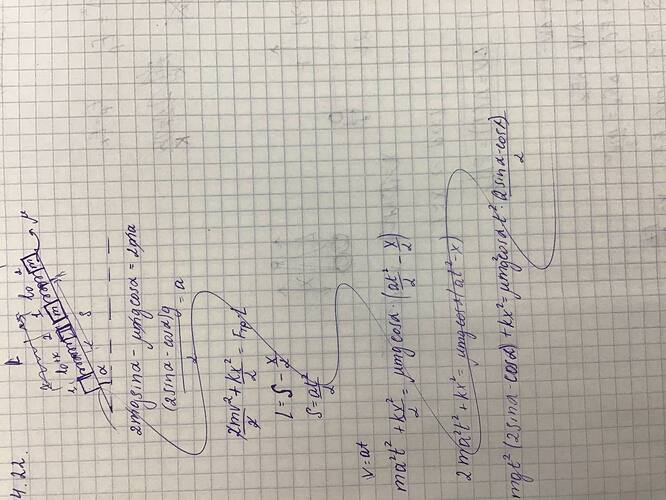 4.22.
2mg sinα - μmg cosα = 2ma
(2sinα - cosα)g / 2 = a
2mv²/2 + kx²/2 = Fтр·L
L = S - x/2
S = at²/2
V = at
ma²t² + kx²/2 = μmg cosα · (at²/2 - x/2)
2ma²t² + kx² = μmg cosα (at² - x)
mgt² (2sinα - cosα) + kx² = μmg² cosα t² · (2sinα - cosα)/2